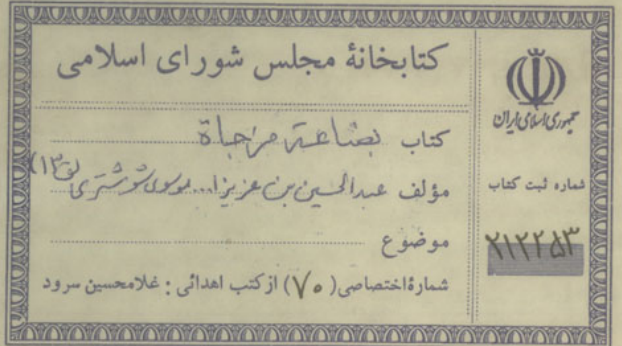 کتابخانهٔ مجلس شورای اسلامی
کتاب بضاعة مزجاة
مؤلف عبدالحسین بن عزیزا... موسوی شوشتری (ق ۱۳)
موضوع
شمارهٔ اختصاصی (۷۰) از کتب اهدائی : غلامحسین سرود
جمهوری اسلامی ایران
شماره ثبت کتاب
۲۱۲۲۵۳